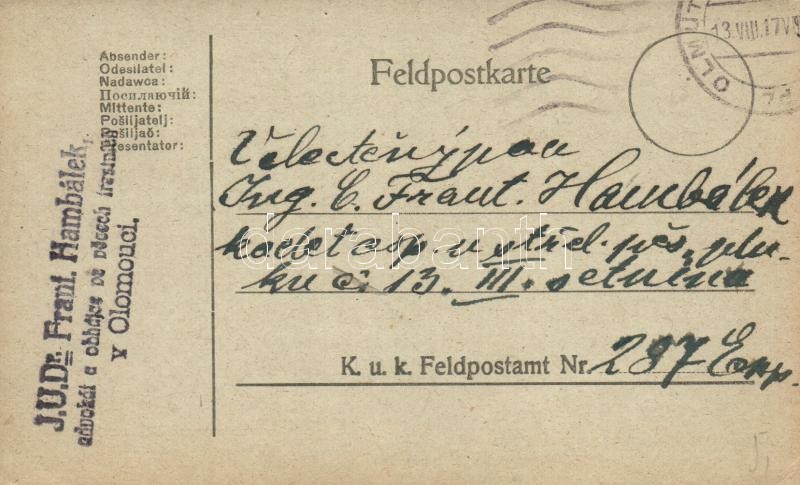 Absender:
Odesílatel:
Nadawca:
Посилаючій:
Mittente:
Pošiljatelj:
Pošiljač:
Presentator:
J.U.Dr. Frant. Hambálek,
advokát a obhájce ve věcech trestních
v Olomouci.
Feldpostkarte
OLMÜTZ
13.VIII.17
Velectěný pan
Ing. C. Frant. Hambálek
kadet asp. u střel. pěš. plu-
ku č. 13. III. setnina
K. u. k. Feldpostamt Nr. 287 Exp.
darabanth
5,